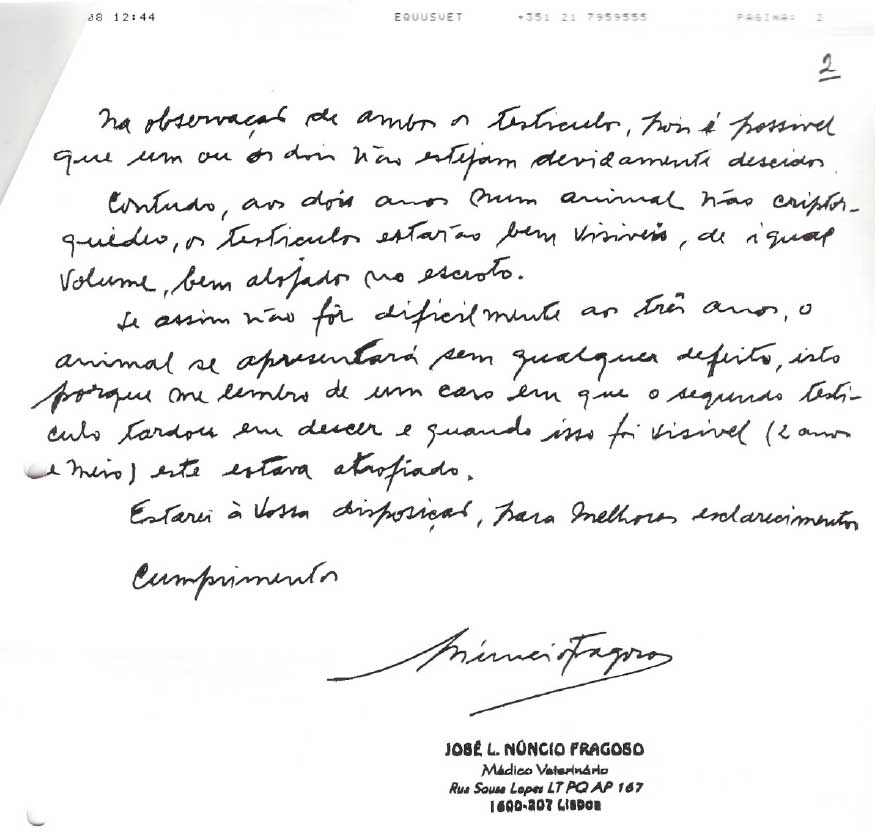 08 12:44 EQUUSVET +351 21 7959555 PAGINA: 2
2
na observação de ambos os testiculos, pois é possivel
que um ou os dois não estejam devidamente descidos.
Contudo, aos dois anos num animal não criptor-
quideo, os testiculos estarão bem visiveis, de igual
volume, bem alojados no escroto.
Se assim não fôr dificilmente aos três anos, o
animal se apresentará sem qualquer defeito, isto
porque me lembro de um caso em que o segundo testi-
culo tardou em descer e quando isso foi visivel (2 anos
e meio) este estava atrofiado.
Estarei à Vossa disposição, para melhores esclarecimentos
Cumprimentos
Núncio Fragoso
JOSÉ L. NÚNCIO FRAGOSO
Médico Veterinário
Rua Sousa Lopes LT PQ AP 167
1600-207 LISBOA